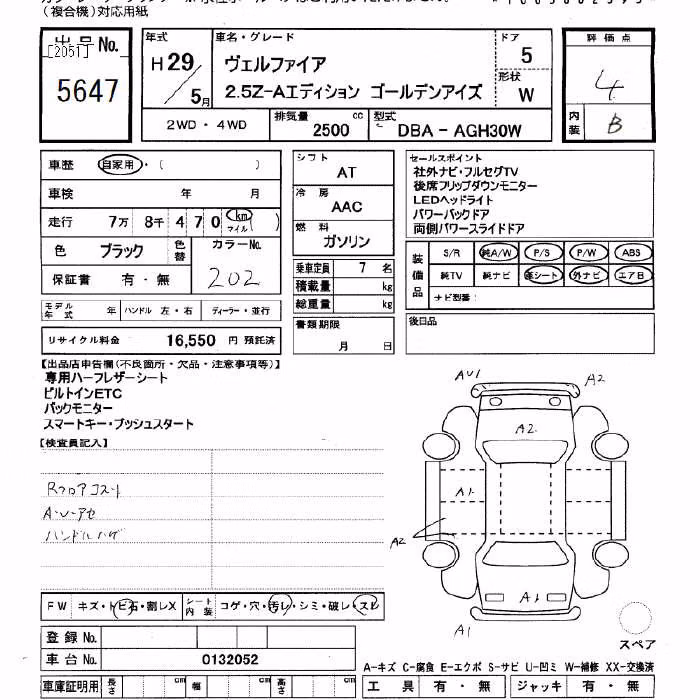 (複合機)対応用紙
出品No.
[2051]
5647
年式
H29/5月
車名・グレード
ヴェルファイア
2.5Z-Aエディション ゴールデンアイズ
ドア
5
形状
W
評価点
4
内装
B
2WD・4WD
排気量
2500 cc
型式
DBA - AGH30W
車歴 自家用・( )
車検 年 月
走行 7万 8千 4 7 0 km マイル ( )
色 ブラック 色替 カラーNo.
202
保証書 有・無
モデル年式 年 ハンドル 左・右 ディーラー・並行
リサイクル料金 16,550 円 預託済
シフト
AT
冷房
AAC
燃料
ガソリン
乗車定員 7 名
積載量 kg
総重量 kg
書類期限
月 日
セールスポイント
社外ナビ・フルセグTV
後席フリップダウンモニター
LEDヘッドライト
パワーバックドア
両側パワースライドドア
装備品
S/R 純A/W P/S P/W ABS
純TV 純ナビ 革シート 外ナビ エアB
ナビ型番:
後日品
【出品店申告欄(不良箇所・欠品・注意事項等)】
専用ハーフレザーシート
ビルトインETC
バックモニター
スマートキー・プッシュスタート
【検査員記入】
Rフロアコスリ
A・U・アセ
ハンドルハゲ
AU1
A2
A2
A1
A2
A1
A1
スペア
FW キズ・トビ石・割レX シート内装 コゲ・穴・汚レ・シミ・破レ・スレ
登録No.
車台No. 0132052
車庫証明用 長さ cm 幅 cm 高さ cm
A-キズ C-腐食 E-エクボ S-サビ U-凹ミ W-補修 XX-交換済
工具 有・無 ジャッキ 有・無